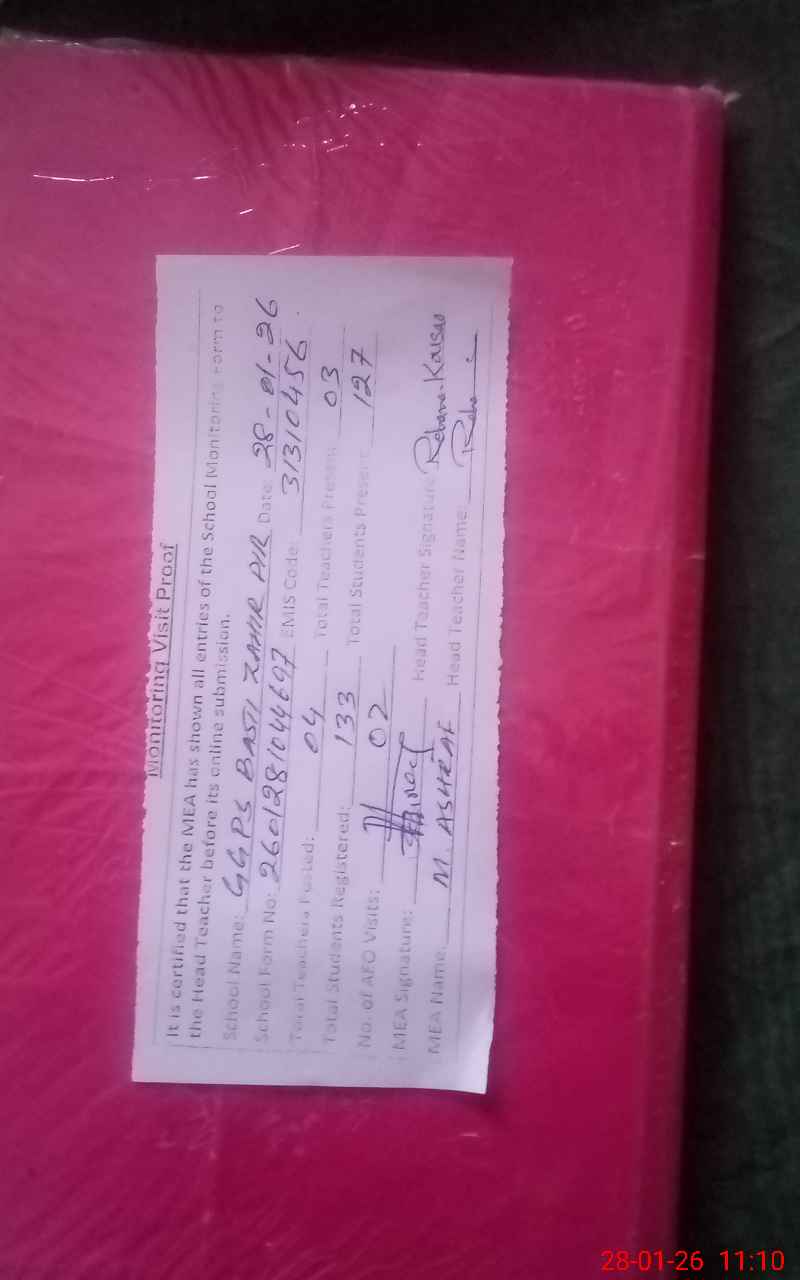 Monitoring Visit Proof
It is certified that the MEA has shown all entries of the School Monitoring Form to
the Head Teacher before its online submission.
School Name: GGPS BASTI ZAHIR PIR Date: 28-01-26
School Form No: 2601281044697 EMIS Code: 31310456
Total Teachers Posted: 04 Total Teachers Present 03
Total Students Registered: 133 Total Students Present 127
No. of AEO Visits: 02
MEA Signature: Head Teacher Signature Rehana Kausar
MEA Name: M. ASHRAF Head Teacher Name:
28-01-26 11:10